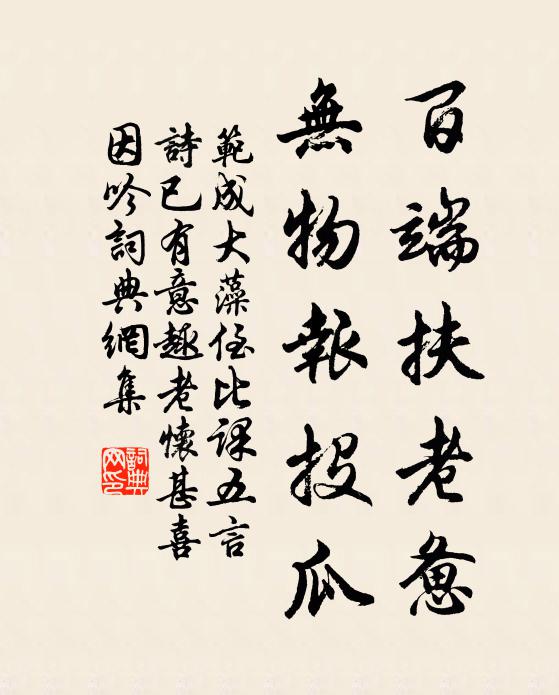 百端扶老惫
無物報投瓜
範成大藻侄比課五言
詩已有意趣老懷甚喜
因吟詞典網集
詞典
网印